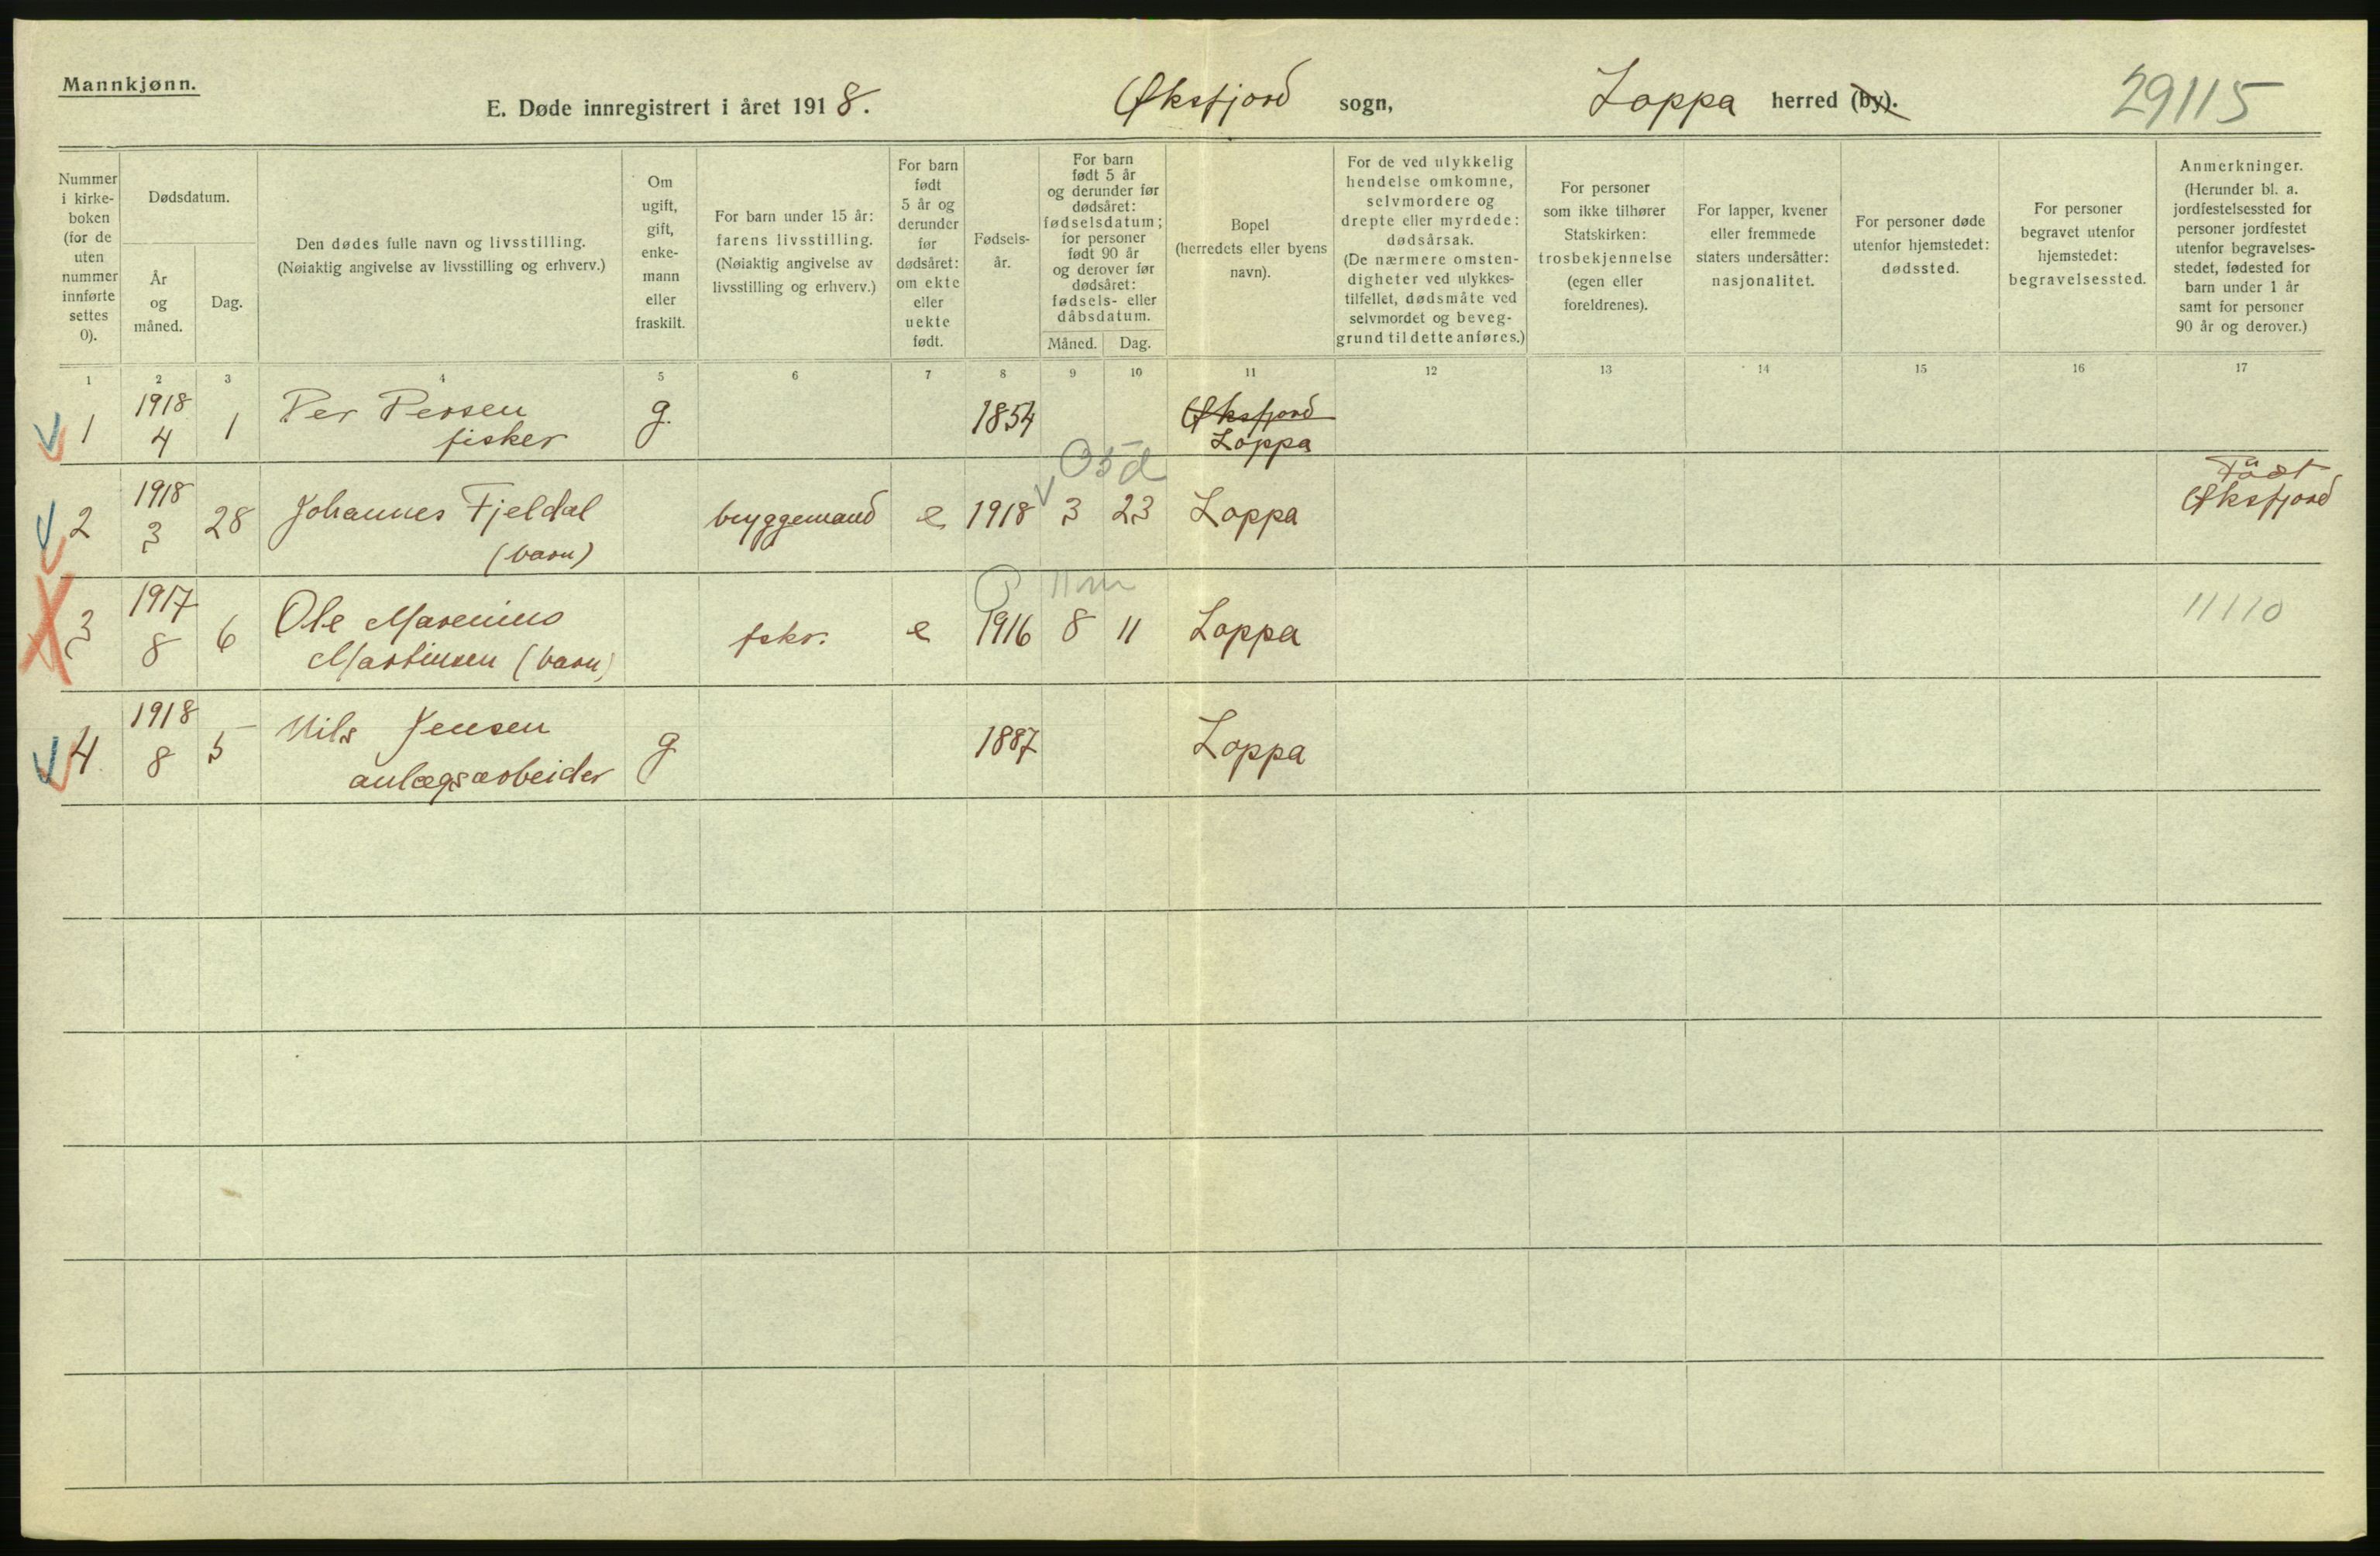 Mannkjønn.
E. Døde innregistrert i året 1918. Øksfjord sogn, Loppa herred (by). 29115
Nummer i kirke- boken (for de uten nummer innførte settes 0).
Dødsdatum.
År og måned.
Dag.
Den dødes fulle navn og livsstilling.
(Nøiaktig angivelse av livsstilling og erhverv.)
Om ugift, gift, enke- mann eller fraskilt.
For barn under 15 år:
farens livsstilling.
(Nøiaktig angivelse av
livsstilling og erhverv.)
For barn født 5 år og derunder før dødsåret: om ekte eller uekte født.
Fødsels- år.
For barn
født 5 år
og derunder før
dødsåret:
fødselsdatum;
for personer
født 90 år
og derover før
dødsåret:
fødsels- eller
dåbsdatum.
Måned. Dag.
Bopel
(herredets eller byens
navn).
For de ved ulykkelig
hendelse omkomne,
selvmordere og
drepte eller myrdede:
dødsårsak.
(De nærmere omsten-
digheter ved ulykkes-
tilfellet, dødsmåte ved
selvmordet og beveg-
grund til dette anføres.)
For personer
som ikke tilhører
Statskirken:
trosbekjennelse
(egen eller
foreldrenes).
For lapper, kvener
eller fremmede
staters undersåtter:
nasjonalitet.
For personer døde
utenfor hjemstedet:
dødssted.
For personer
begravet utenfor
hjemstedet:
begravelsessted.
Anmerkninger.
(Herunder bl. a.
jordfestelsessted for
personer jordfestet
utenfor begravelses-
stedet, fødested for
barn under 1 år
samt for personer
90 år og derover.)
1 2 3 4 5 6 7 8 9 10 11 12 13 14 15 16 17
1 1918 4 1 Per Persen fisker g. 1854 Øksfjord Loppa
2 1918 3 28 Johannes Fjeldal (barn) bryggemand e 1918 3 23 Loppa Født Øksfjord
5 d
3 1917 8 6 Ole Marenius Martinsen (barn) fskr. e 1916 8 11 Loppa 11110
11 m
4 1918 8 5 Nils Jensen anlægsarbeider g 1887 Loppa